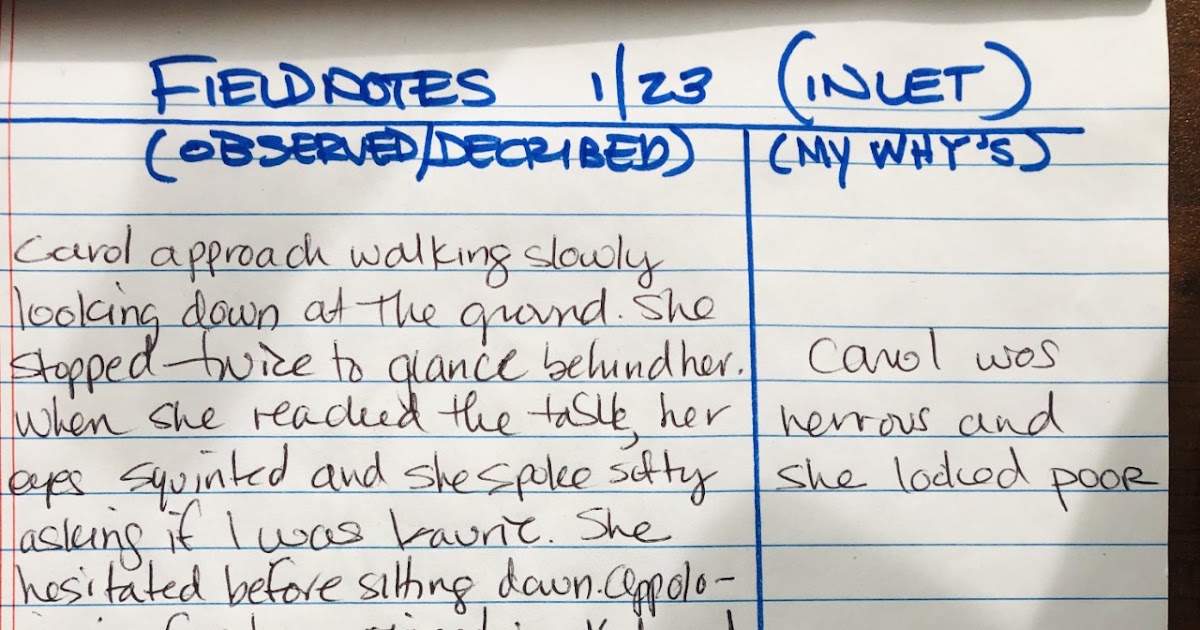 FIELDNOTES 1/23 (INLET)
(OBSERVED/DECRIBED) (MY WHY'S)
Carol approach walking slowly
looking down at the ground. She
stopped twice to glance behind her.
Carol was
when she reached the table, her
nervous and
eyes squinted and she spoke softly
she looked poor
asking if I was Laurie. She
hesitated before sitting down. Appolo-